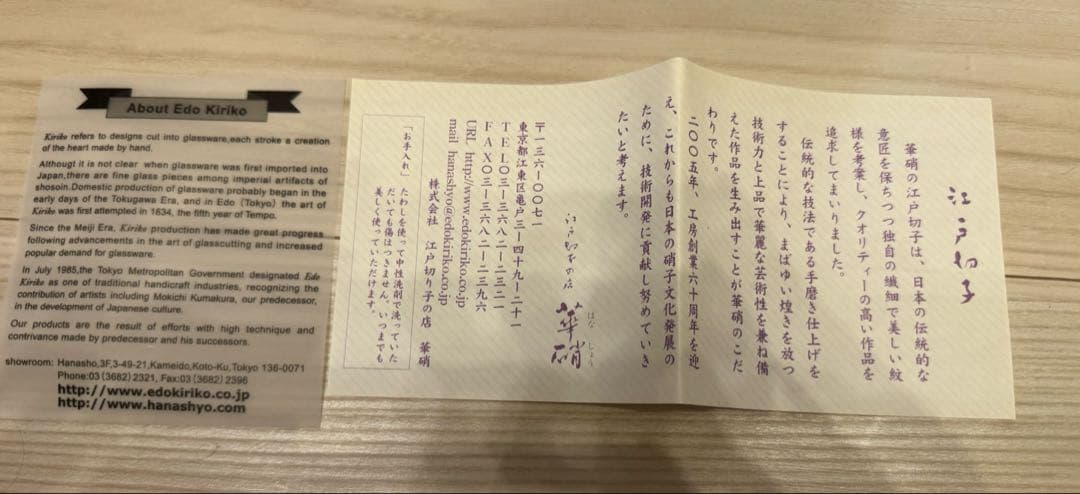 About Edo Kiriko
Kiriko refers to designs cut into glassware,each stroke a creation
of the heart made by hand.
Althougt it is not clear when glassware was first imported into
Japan,there are fine glass pieces among imperial artifacts of
shosoin.Domestic production of glassware probably began in the
early days of the Tokugawa Era, and in Edo (Tokyo) the art of
Kiriko was first attempted in 1634, the fifth year of Tempo.
Since the Meiji Era, Kiriko production has made great progress
following advancements in the art of glasscutting and increased
popular demand for glassware.
In July 1985,the Tokyo Metropolitan Government designated Edo
Kiriko as one of traditional handicraft industries, recognizing the
contribution of artists including Mokichi Kumakura, our predecessor,
in the development of Japanese culture.
Our products are the result of efforts with high technique and
contrivance made by predecessor and his successors.
showroom: Hanasho,3F,3-49-21,Kameido,Koto-Ku,Tokyo 136-0071
Phone:03(3682)2321, Fax:03(3682)2396
http://www.edokiriko.co.jp
http://www.hanashyo.com
江戸切子
華硝の江戸切子は、日本の伝統的な
意匠を保ちつつ独自の繊細で美しい紋
様を考案し、クオリティーの高い作品を
追求してまいりました。
伝統的な技法である手磨き仕上げを
することにより、まばゆい煌きを放つ
技術力と上品で華麗な芸術性を兼ね備
えた作品を生み出すことが華硝のこだ
わりです。
二〇〇五年、工房創業六十周年を迎
え、これからも日本の硝子文化発展の
ために、技術開発に貢献し努めていき
たいと考えます。
江戸切子の店 華硝
はな しょう
〒一三六-〇〇七一
東京都江東区亀戸三-四十九-二十一
TEL〇三-三六八二-二三二一
FAX〇三-三六八二-二三九六
URL http://www.edokiriko.co.jp
mail hanashyo@edokiriko.co.jp
株式会社 江戸切り子の店 華硝
「お手入れ」 たわしを使って中性洗剤で洗っていた
だいても傷はつきません。いつまでも
美しく使っていただけます。